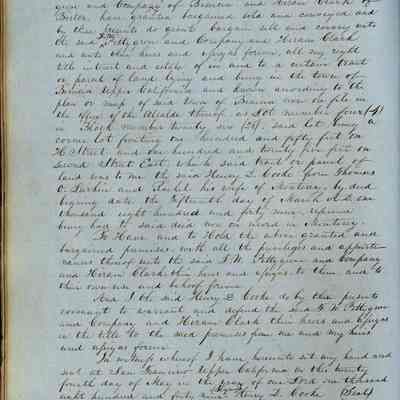 grew and Company of Benicia and Hiram Clark of
Butler, have granted bargained sold and conveyed and
by these presents do grant bargain sell and convey unto
the said F.W. Pettygrew and Company and Hiram Clark
and unto their heirs and assigns forever, all my right
title interest and estate of in and to a certain tract
or parcel of land lying and being in the town of
Benicia Upper California and known according to the
plan or map of said town of Benicia now on file in
the office of the Alcalde thereof as Lot number four (4)
in Block number twenty six (26), said lot being a
corner lot fronting one hundred and fifty feet on
H Street and one hundred and twenty five feet on
Second Street East, which said tract or parcel of
land was to me the said Henry D. Cooke from Thomas
O. Larkin and Rachel his wife of Monterey, by deed
bearing date the Fifteenth day of March A.D. one
thousand eight hundred and forty nine, reference
being had to said deed now on record in Monterey.
To Have and to Hold the above granted and
bargained premises with all the privileges and appurte-
nances thereof unto the said F.W. Pettygrew and Company
and Hiram Clark their heirs and assigns to them and to
their own use and behoof forever.
And I the said Henry D. Cooke do by these presents
covenant to warrant and defend the said F.W. Pettygrew
and Company and Hiram Clark their heirs and assigns
in the title to the said premises from me and my heirs
and assigns forever.
In witness whereof I have hereunto set my hand and
seal at San Francisco Upper California on this twenty
fourth day of May in the year of our Lord one thousand
eight hundred and forty nine. Henry D. Cooke (Seal)